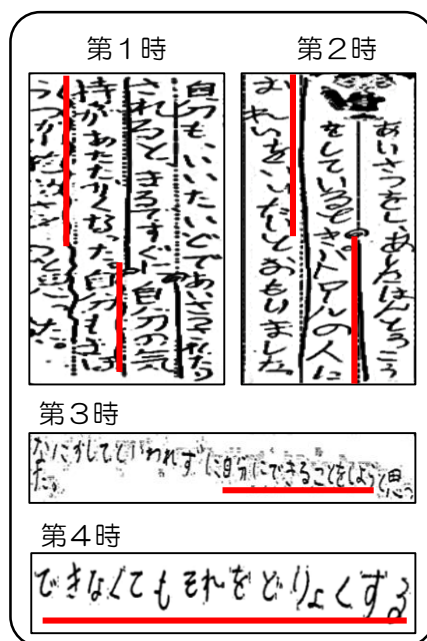 第1時
自分も、いいたいどであいさつしたら
されると、まるですぐに自分の気
持があたたかくなった。自分もうけ
第2時
あいさつをし、あしたはんとうこう
をしているときパトロールの人に
おれいをいいたいとおもいました。
第3時
なにかしてといわれずに自分にできることをしようと思っ
た。
第4時
できなくてもそれをどりょくする